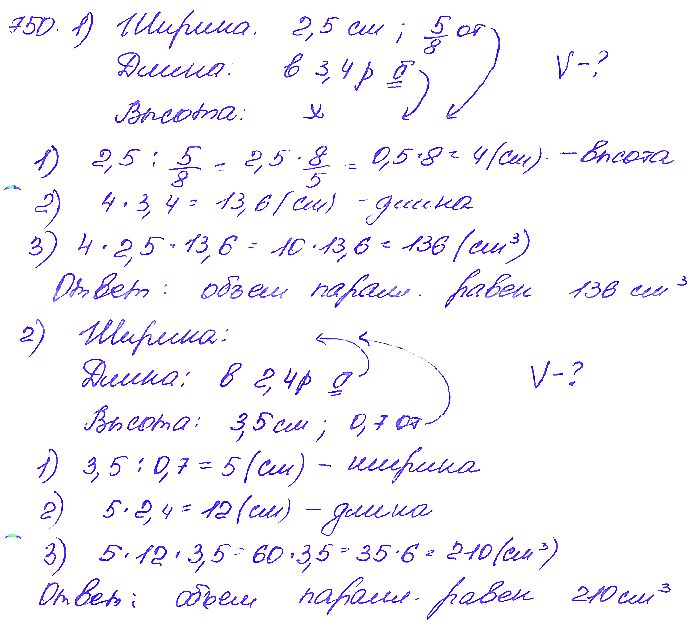 750. 1) Ширина. 2,5 см ; 5/8 от
Длина: в 3,4 р б V-?
Высота: x
1) 2,5 : 5/8 = 2,5 · 8/5 = 0,5 · 8 = 4 (см). - высота
2) 4 · 3,4 = 13,6 (см) - длина
3) 4 · 2,5 · 13,6 = 10 · 13,6 = 136 (см³)
Ответ: объем паралл. равен 136 см³
2) Ширина:
Длина: в 2,4 р б V-?
Высота: 3,5 см ; 0,7 от
1) 3,5 : 0,7 = 5 (см) - ширина
2) 5 · 2,4 = 12 (см) - длина
3) 5 · 12 · 3,5 = 60 · 3,5 = 35 · 6 = 210 (см³)
Ответ: объем паралл. равен 210 см³